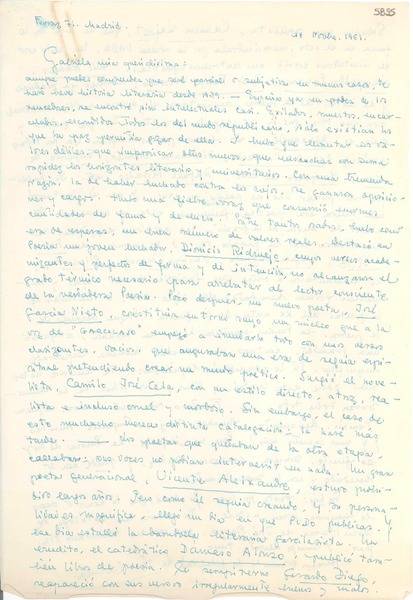 5895
Ferraz 71. Madrid.
11 Novbre. 1951.
Gabriela mía queridísima:
aunque puedes comprender que seré parcial o subjetiva en muchos casos, te
haré breve historia literaria desde 1939. — España ya en poder de los
vencedores, se encontró sin intelectuales casi. Exilados, muertos, encar-
celados, escondidos todos los del mundo republicano, sólo existían los
que la paz permitía gozar de ella. Y hubo que levantar es va-
lores débiles, que improvisar otros nuevos, que ensanchar con suma
rapidez los horizontes literarios y universitarios. Con una tremenda
razón: la de haber luchado contra los rojos, se ganaron oposicio-
nes y cargos. Hubo una fiebre voraz que consumió enormes
cantidades de fama y de dinero. Entre tantos nabos, hubo como
era de esperar, un buen número de valores reales. Destacó en
Poesía un joven luchador, Dionisio Ridruejo, cuyos versos acade-
mizantes y perfectos de forma y de intención, no alcanzaron el
grado térmico necesario para arrebatar al lector consciente
de la verdadera Poesía. Poco después, un nuevo poeta, José
García Nieto, constituía en torno suyo un núcleo que a la
voz de "GARCILASO" empezó a inundarlo todo con sus versos
clasizantes, vacíos, que auguraban una era de sequía espi-
ritual pretendiendo crear un mundo poético. Surgió el nove-
lista, Camilo José Cela, con un estilo directo, atroz, rea-
lista e incluso cruel y morboso. Sin embargo, el caso de
este muchacho merece distinta catalogación: la haré más
tarde. — Los poetas que quedaban de la otra etapa,
callaban: sus voces no podían intervenir en nada. Un gran
poeta generacional, Vicente Aleixandre, estuvo prohi-
bido largos años. Pero como él seguía creando, y su persona-
lidad es magnífica, llegó un día en que PUDO publicar. Y
ese día estalló la bambolla literaria garcilasista. Un
erudito, el catedrático Damaso Alonso, publicó tam-
bién libros de poesía. Le sempiterno Gerardo Diego,
reapareció con sus versos irregularmente buenos y malos.